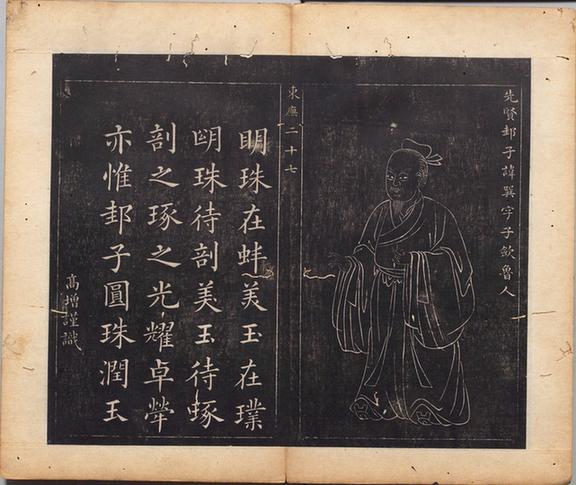 先賢邽子諱巽字子歛魯人
東廡二十七
眀珠在蚌美玉在璞
朙珠待剖美玉待琢
剖之琢之光耀卓犖
亦惟邽子圓珠潤玉
高增謹識